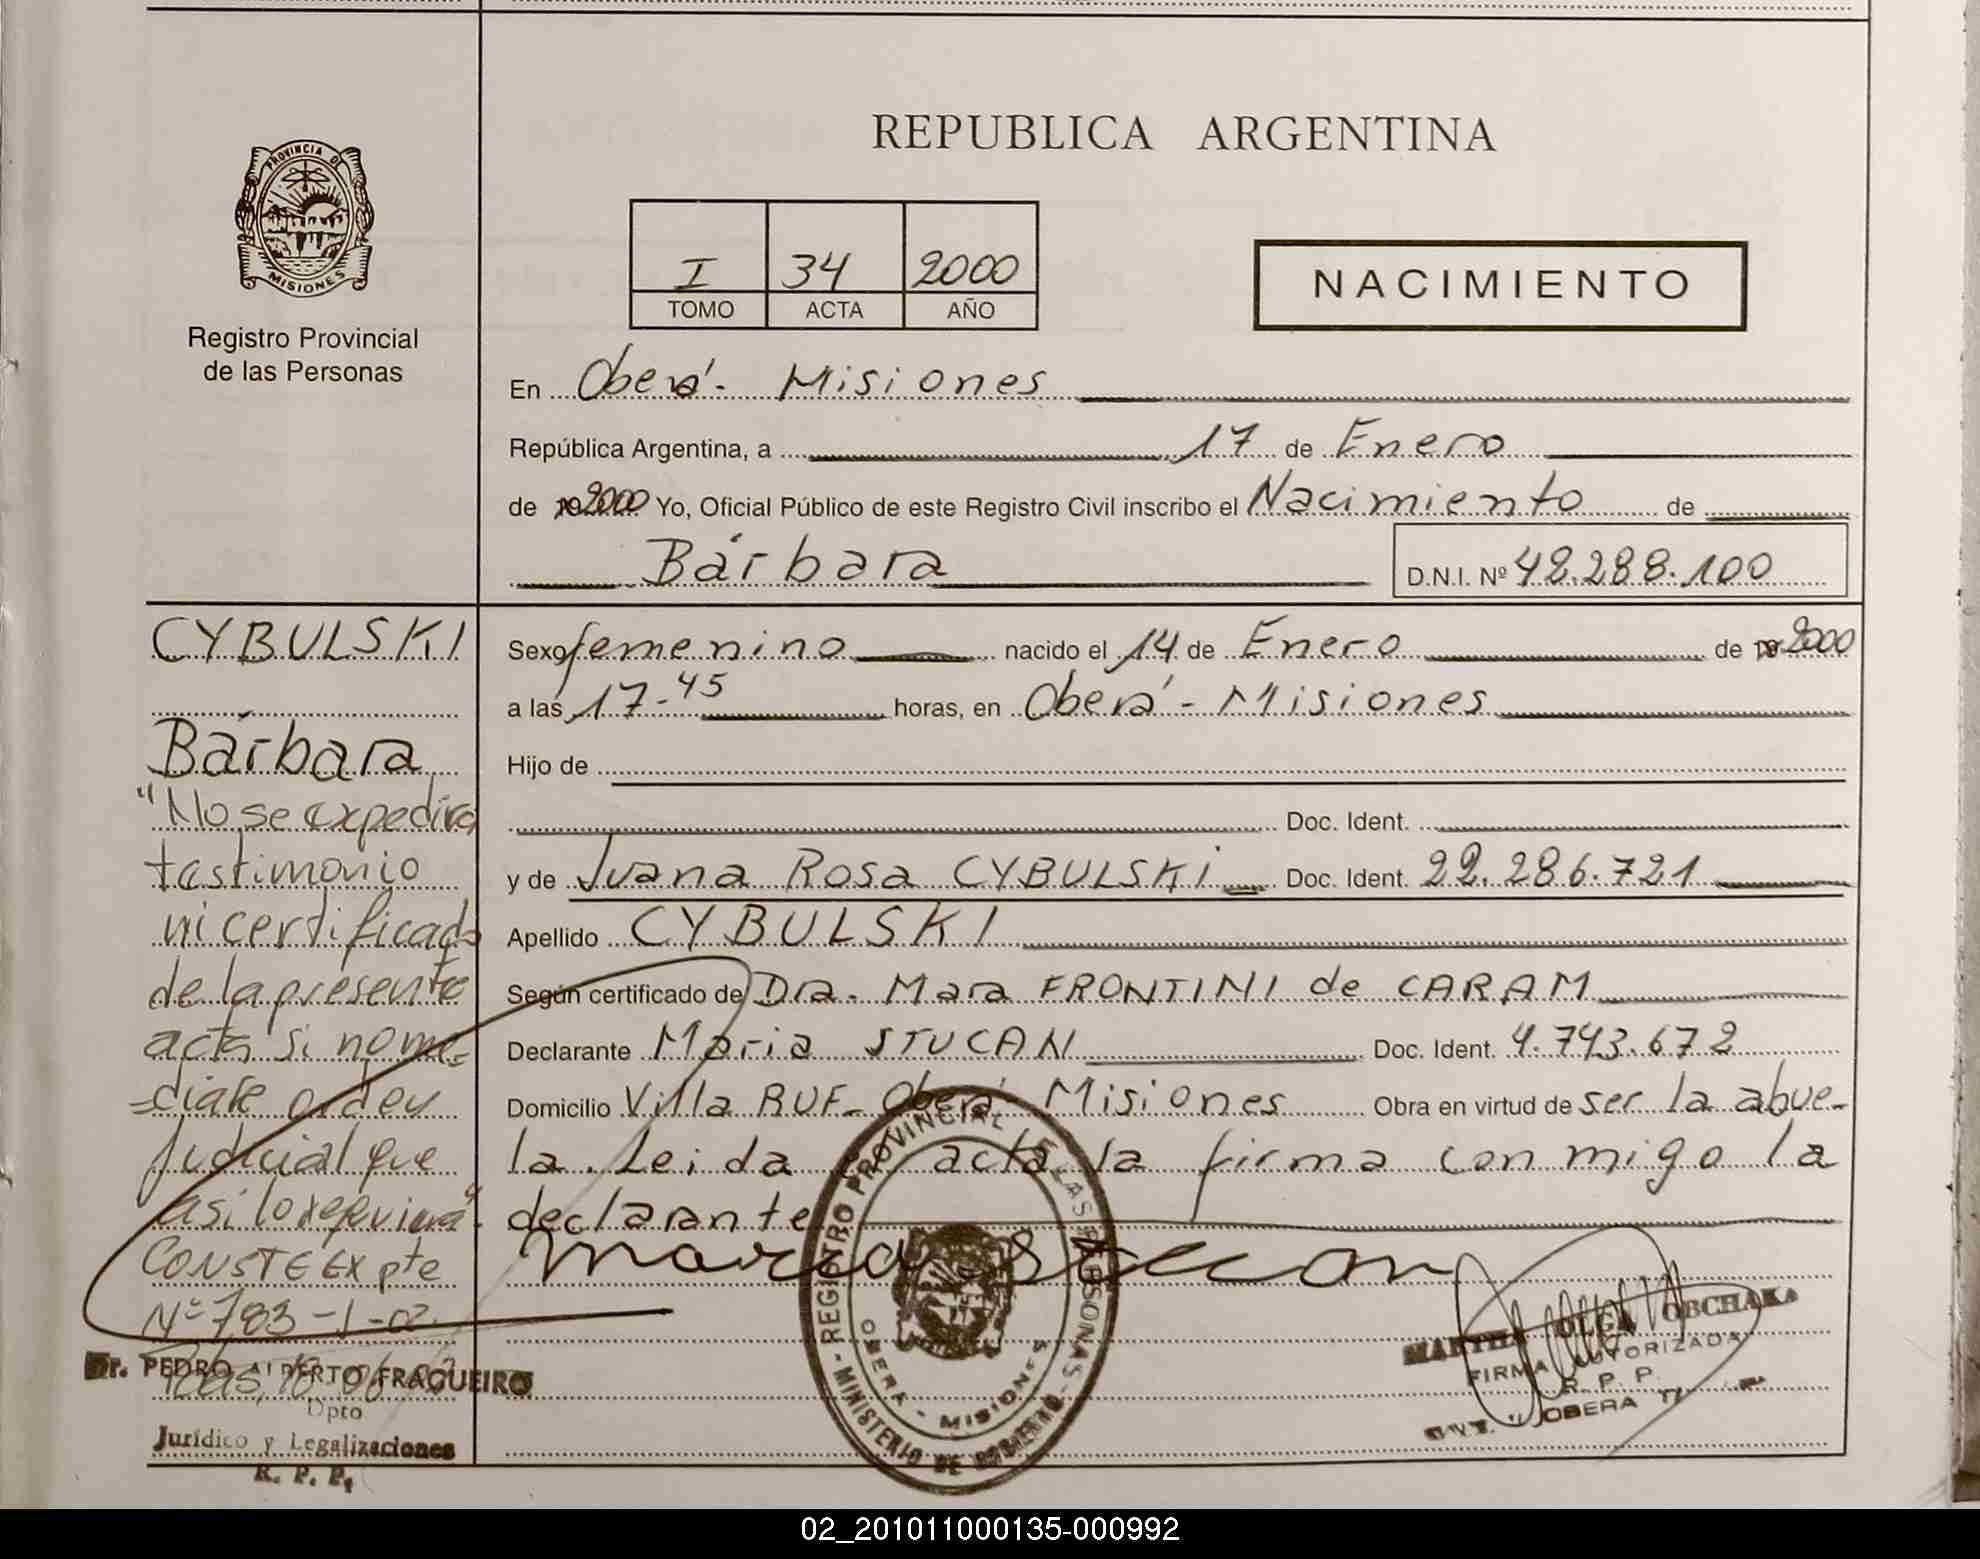 REPUBLICA ARGENTINA
PROVINCIA DE
MISIONES
Registro Provincial
de las Personas
I 34 2000
TOMO ACTA AÑO
NACIMIENTO
En Oberá - Misiones
República Argentina, a 17 de Enero
de 2000 Yo, Oficial Público de este Registro Civil inscribo el Nacimiento de
Bárbara D.N.I. Nº 42.288.100
CYBULSKI
Bárbara
"No se expedira
testimonio
ni certificado
de la presente
acta si no me=
=diate orden
judicial que
asi lo requiera".
CONSTE Expte
Nº 783-1-02
Dr. PEDRO ALBERTO FRAGUEIRO
Dpto
Jurídico y Legalizaciones
R. P. P.
Sexo femenino nacido el 14 de Enero de 2000
a las 17-45 horas, en Oberá - Misiones
Hijo de
Doc. Ident.
y de Juana Rosa CYBULSKI Doc. Ident. 22.286.721
Apellido CYBULSKI
Según certificado de Dra. Mara FRONTINI de CARAM
Declarante Maria STUCAN Doc. Ident. 4.743.672
Domicilio Villa RUF - Oberá Misiones Obra en virtud de ser la abue-
la. Leida acta la firma con migo la
declarante
REGISTRO PROVINCIAL DE LAS PERSONAS - MINISTERIO DE GOBIERNO
OBERA - MISIONES
MARTHA OLGA OBCHAKA
FIRMA AUTORIZADA
R. P. P.
OBERA
02_201011000135-000992